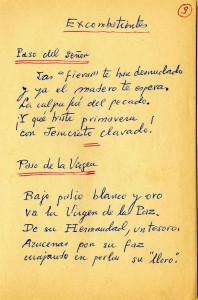 9
Excombatientes
Paso del Señor
Las "fieras" te han desnudado
y ya el madero te espera.
La culpa fué del pecado.
¡Y qué triste primavera
con Jesucristo clavado!
Paso de la Virgen
Bajo palio blanco y oro
va la Virgen de la Paz.
De su Hermandad, un tesoro.
Azucenas por su faz
cuajando en perlas su "lloro".